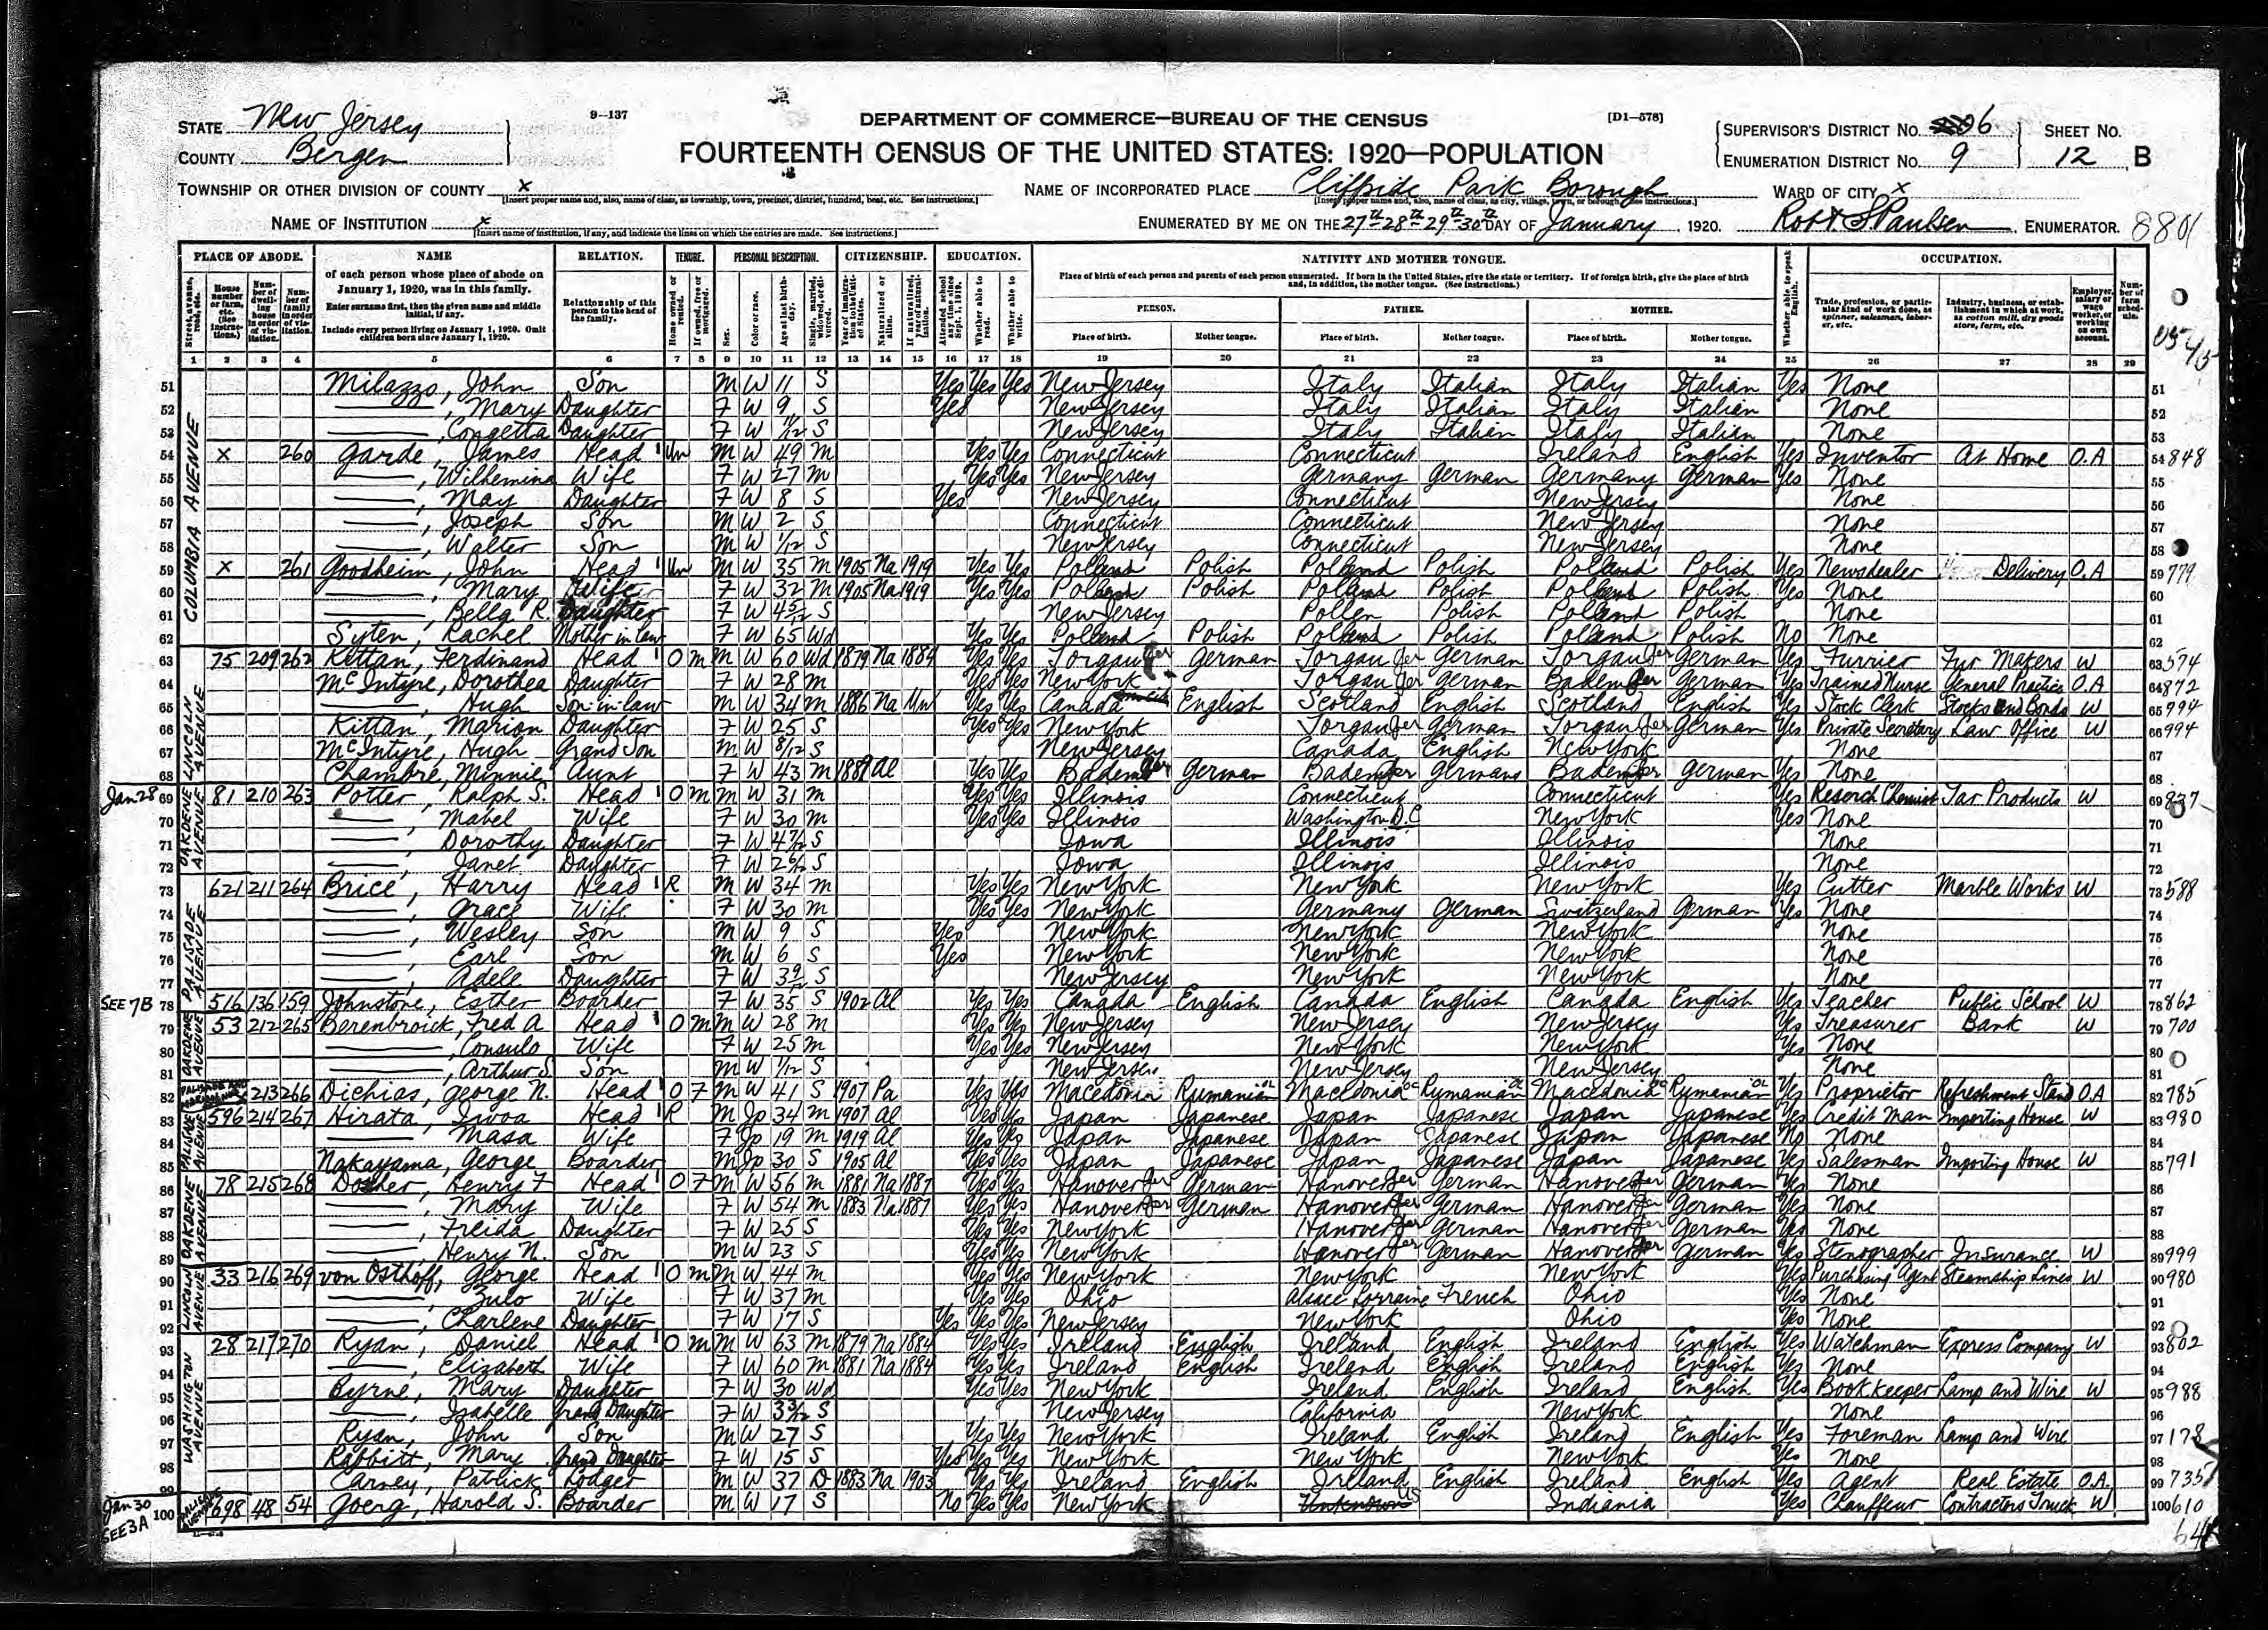 9—137
DEPARTMENT OF COMMERCE—BUREAU OF THE CENSUS
[D1—578]
STATE New Jersey
COUNTY Bergen
FOURTEENTH CENSUS OF THE UNITED STATES: 1920—POPULATION
SUPERVISOR'S DISTRICT No. 6
ENUMERATION DISTRICT No. 9
SHEET No. 12 B
TOWNSHIP OR OTHER DIVISION OF COUNTY x
[Insert proper name and, also, name of class, as township, town, precinct, district, hundred, beat, etc. See instructions.]
NAME OF INCORPORATED PLACE Cliffside Park Borough
[Insert proper name and, also, name of class, as city, village, town, or borough. See instructions.]
WARD OF CITY x
NAME OF INSTITUTION x
[Insert name of institution, if any, and indicate the lines on which the entries are made. See instructions.]
ENUMERATED BY ME ON THE 27th-28th-29th-30th DAY OF January, 1920. Robt. S Paulsen, ENUMERATOR. 8801
PLACE OF ABODE. NAME RELATION. TENURE. PERSONAL DESCRIPTION. CITIZENSHIP. EDUCATION. NATIVITY AND MOTHER TONGUE. OCCUPATION.
of each person whose place of abode on January 1, 1920, was in this family.
Enter surname first, then the given name and middle initial, if any.
Include every person living on January 1, 1920. Omit children born since January 1, 1920.
Relationship of this person to the head of the family.
Place of birth of each person and parents of each person enumerated. If born in the United States, give the state or territory. If of foreign birth, give the place of birth and, in addition, the mother tongue. (See instructions.)
PERSON. FATHER. MOTHER.
Place of birth. Mother tongue. Place of birth. Mother tongue. Place of birth. Mother tongue.
1 2 3 4 5 6 7 8 9 10 11 12 13 14 15 16 17 18 19 20 21 22 23 24 25 26 27 28 29
51 Milazzo, John Son M W 11 S Yes Yes Yes New Jersey Italy Italian Italy Italian Yes None 51
52 ——, Mary Daughter F W 9 S Yes New Jersey Italy Italian Italy Italian None 52
53 ——, Congetta Daughter F W S New Jersey Italy Italian Italy Italian None 53
COLUMBIA AVENUE
54 x 260 Garde, James Head 1 Un M W 49 M Yes Yes Connecticut Connecticut Ireland English Yes Inventor At Home O.A 54 848
55 ——, Wilhemina Wife F W 27 M Yes Yes New Jersey Germany German Germany German Yes None 55
56 ——, May Daughter F W 8 S Yes New Jersey Connecticut New Jersey None 56
57 ——, Joseph Son M W 2 S Connecticut Connecticut New Jersey None 57
58 ——, Walter Son M W 1/12 S New Jersey Connecticut New Jersey None 58
59 x 261 Goodheim, John Head 1 Un M W 35 M 1905 Na 1919 Yes Yes Poland Polish Poland Polish Poland Polish Yes Newsdealer Delivery O.A 59 779
60 ——, Mary Wife F W 32 M 1905 Na 1919 Yes Yes Poland Polish Poland Polish Poland Polish Yes None 60
61 ——, Bella R. Daughter F W 4 5/12 S New Jersey Pollen Polish Poland Polish None 61
62 Syten, Rachel Mother in law F W 65 Wd Yes Yes Poland Polish Poland Polish Poland Polish No None 62
LINCOLN AVENUE
63 75 209 262 Kittan, Ferdinand Head 1 O M M W 60 Wd 1879 Na 1884 Yes Yes Torgau Ger German Torgau Ger German Torgau Ger German Yes Furrier Fur Makers W 63 574
64 McIntyre, Dorothea Daughter F W 28 M Yes Yes New York Torgau Ger German Baden Ger German Yes Trained Nurse General Practice O.A 64 872
65 ——, Hugh Son-in-law M W 34 M 1886 Na Un Yes Yes Canada English Scotland English Scotland English Yes Stock Clerk Stocks and Bonds W 65 994
66 Kittan, Marion Daughter F W 25 S Yes Yes New York Torgau Ger German Torgau Ger German Yes Private Secretary Law Office W 66 994
67 McIntyre, Hugh Grand Son M W 8/12 S New Jersey Canada English New York None 67
68 Chambre, Minnie Aunt F W 43 M Al Yes Yes Baden Ger German Baden Ger German Baden Ger German Yes None 68
OAKDENE AVENUE
Jan 28 69 81 210 263 Potter, Ralph S. Head 1 O M M W 31 M Yes Yes Illinois Connecticut Connecticut Yes Reserch Chemist Tar Products W 69 837
70 ——, Mabel Wife F W 30 M Yes Yes Illinois Washington D.C New York Yes None 70
71 ——, Dorothy Daughter F W 4 7/12 S Iowa Illinois Illinois None 71
72 ——, Janet Daughter F W 2 6/12 S Iowa Illinois Illinois None 72
PALISADE AVENUE
73 621 211 264 Brice, Harry Head 1 R M W 34 M Yes Yes New York New York New York Yes Cutter Marble Works W 73 588
74 ——, Grace Wife F W 30 M Yes Yes New York Germany German Switzerland German Yes None 74
75 ——, Wesley Son M W 9 S Yes New York New York New York None 75
76 ——, Earl Son M W 6 S Yes New York New York New York None 76
77 ——, Adele Daughter F W S New Jersey New York New York None 77
SEE 7B 78 516 136 159 Johnstone, Esther Boarder F W 35 S 1902 Al Yes Yes Canada English Canada English Canada English Yes Teacher Public School W 78 862
OAKDENE AVENUE
79 53 212 265 Berenbroick, Fred A. Head 1 O M M W 28 M Yes Yes New Jersey New Jersey New Jersey Yes Treasurer Bank W 79 700
80 ——, Consulo Wife F W 25 M Yes Yes New Jersey New York New York Yes None 80
81 ——, Arthur S. Son M W 1/12 S New Jersey New Jersey New Jersey None 81
82 213 266 Dichias, George N. Head 1 O F M W 41 S 1907 Pa Yes Yes Macedonia Rumanian Macedonia Rumanian Macedonia Rumanian Yes Proprietor Refreshment Stand O.A 82 785
PALISADE AVENUE
83 596 214 267 Hirata, Head 1 R M Jp 34 M 1907 Al Yes Yes Japan Japanese Japan Japanese Japan Japanese Yes Credit Man Importing House W 83 980
84 —— Masa Wife F Jp 19 M 1919 Al Yes Yes Japan Japanese Japan Japanese Japan Japanese No None 84
85 Nakayama, George Boarder M Jp 30 S 1905 Al Yes Yes Japan Japanese Japan Japanese Japan Japanese Yes Salesman Importing House W 85 791
OAKDENE AVENUE
86 78 215 268 Dosher, Henry F Head 1 O F M W 56 M 1881 Na 1887 Yes Yes Hanover Ger German Hanover Ger German Hanover Ger German Yes None 86
87 ——, Mary Wife F W 54 M 1883 Na 1887 Yes Yes Hanover Ger German Hanover Ger German Hanover Ger German Yes None 87
88 ——, Freida Daughter F W 25 S Yes Yes New York Hanover Ger German Hanover Ger German Yes None 88
89 ——, Henry N. Son M W 23 S Yes Yes New York Hanover Ger German Hanover Ger German Yes Stenographer Insurance W 89 999
LINCOLN AVENUE
90 33 216 269 von Osthoff, George Head 1 O M M W 44 M Yes Yes New York New York New York Yes Purchasing Agent Steamship Lines W 90 980
91 ——, Zulo Wife F W 37 M Yes Yes Ohio Alsace Lorraine French Ohio Yes None 91
92 ——, Charlene Daughter F W 17 S Yes Yes Yes New Jersey New York Ohio Yes None 92
WASHINGTON AVENUE
93 28 217 270 Ryan, Daniel Head 1 O M M W 63 M 1879 Na 1884 Yes Yes Ireland English Ireland English Ireland English Yes Watchman Express Company W 93 802
94 ——, Elizabeth Wife F W 60 M 1881 Na 1884 Yes Yes Ireland English Ireland English Ireland English Yes None 94
95 Byrne, Mary Daughter F W 30 Wd Yes Yes New York Ireland English Ireland English Yes Bookkeeper Lamp and Wire W 95 988
96 ——, Izabelle Grand Daughter F W 3 3/12 S New Jersey California New York None 96
97 Ryan, John Son M W 27 S Yes Yes New York Ireland English Ireland English Yes Foreman Lamp and Wire 97 178
98 Rabbitt, Mary Grand Daughter F W 15 S Yes Yes Yes New York New York New York Yes None 98
99 Carney, Patrick Lodger M W 37 D 1883 Na 1903 Yes Yes Ireland English Ireland English Ireland English Yes Agent Real Estate O.A. 99 735
Jan 30 SEE 3A 100 PALISADE AVENUE 698 48 54 Goerg, Harold S. Boarder M W 17 S No Yes Yes New York Unknown US Indiania Yes Chauffeur Contractors Truck W 100 610